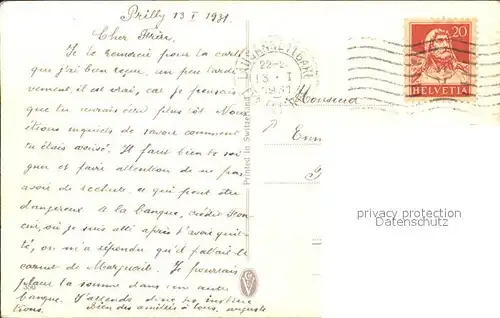 Prilly 13 I 1931.
Cher Frère,
Je te remercie pour la carte
que j'ai bien reçue, un peu tardi-
vement, il est vrai, car je pensais
que tu écrire plus tôt. Nous
étions inquiets de savoir comment
tu étais arrivé. Il faut bien te soi-
gner et faire attention de ne pas
avoir de rechute, ce qui peut être
dangereux. A la banque, crédit fon-
cier, où je suis allé après t'avoir quit-
té, on m'a répondu qu'il fallait le
carnet de Marguerite. Je pourrais
placer la somme dans une autre
banque. J'attends donc tes instruc-
tions. Bien des amitiés à tous. Auguste
LAUSANNE 1 GARE
13. I
1931
20
HELVETIA
Monsieur
Printed in Switzerland
privacy protection
watermark